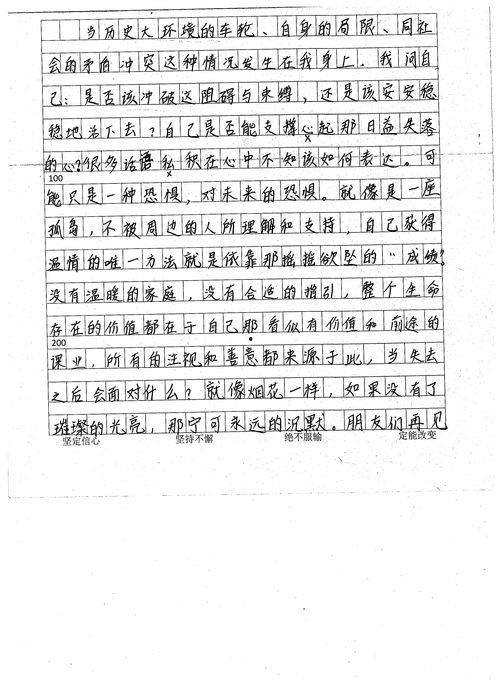 当历史大环境的车轮、自身的局限、同社
会的矛盾冲突这种情况发生在我身上。我问自
己：是否该冲破这阻碍与束缚，还是该安安稳
稳地活下去？自己是否能支撑心起那日益失落
的心？很多话语私积在心中不知该如何表达。可
100
能只是一种恐惧，对未来的恐惧。就像是一座
孤岛，不被周边的人所理解和支持，自己获得
温情的唯一方法就是依靠那摇摇欲坠的“成绩？
没有温暖的家庭，没有合适的指引，整个生命
存在的价值都在于自己那看似有价值和前途的
200
课业，所有的注视和善意都来源于此，当失去
之后会面对什么？就像烟花一样，如果没有了
璀璨的光亮，那宁可永远的沉默。朋友们再见
坚定信心 坚持不懈 绝不服输 定能改变